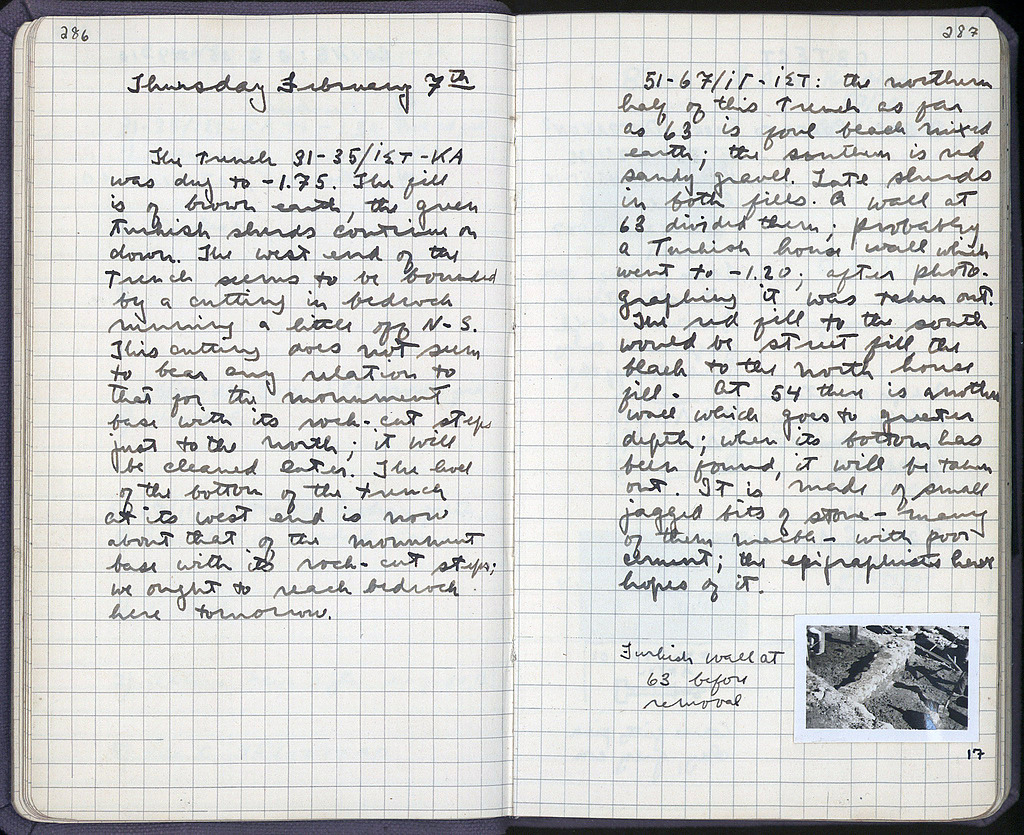 286
Thursday February 7th
The trench 31-35/ΙΣΤ-ΚΑ
was dug to -1.75. The fill
is of brown earth, the green
Turkish sherds continue on
down. The west end of the
trench seems to be bounded
by a cutting in bedrock
running a little off N-S.
This cutting does not seem
to bear any relation to
that for the monument
base with its rock-cut steps
just to the north; it will
be cleaned later. The level
of the bottom of the trench
at its west end is now
about that of the monument
base with its rock-cut steps;
we ought to reach bedrock
here tomorrow.
287
51-67/ΙΓ-ΙΣΤ: the northern
half of this trench as far
as 63 is foul beach mixed
earth; the southern is red
sandy gravel. Late sherds
in both fills. A wall at
63 divided them; probably
a Turkish house wall which
went to -1.20; after photo-
graphing it was taken out.
The red fill to the south
would be street fill the
black to the north house
fill. At 54 there is another
wall which goes to greater
depth; when its bottom has
been found, it will be taken
out. It is made of small
jagged bits of stone - many
of them marble - with poor
cement; the epigraphists have
hopes of it.
Turkish wall at
63 before
removal
17